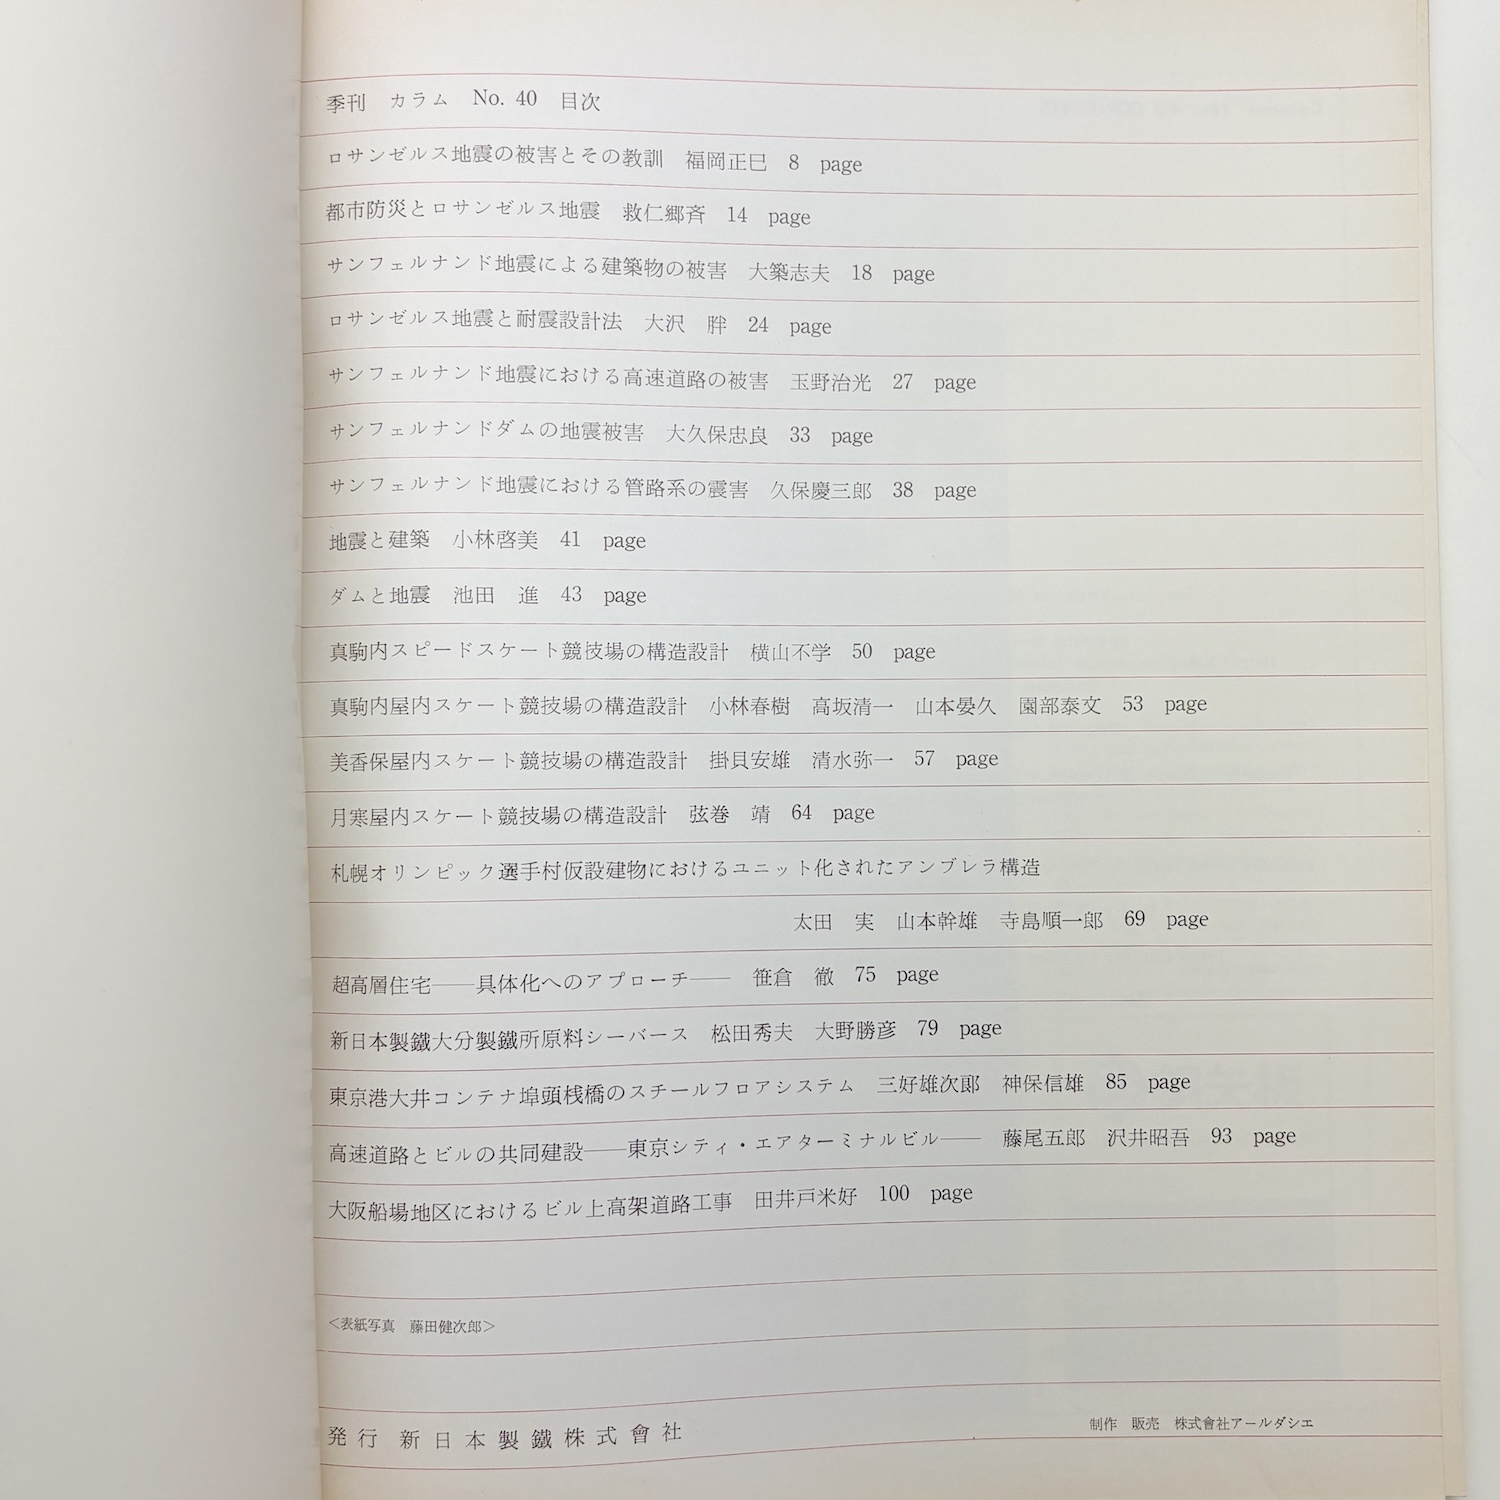 季刊　カラム　No. 40　目次
ロサンゼルス地震の被害とその教訓　福岡正巳　8　page
都市防災とロサンゼルス地震　救仁郷斉　14　page
サンフェルナンド地震による建築物の被害　大築志夫　18　page
ロサンゼルス地震と耐震設計法　大沢　胖　24　page
サンフェルナンド地震における高速道路の被害　玉野治光　27　page
サンフェルナンドダムの地震被害　大久保忠良　33　page
サンフェルナンド地震における管路系の震害　久保慶三郎　38　page
地震と建築　小林啓美　41　page
ダムと地震　池田　進　43　page
真駒内スピードスケート競技場の構造設計　横山不学　50　page
真駒内屋内スケート競技場の構造設計　小林春樹　高坂清一　山本晏久　園部泰文　53　page
美香保屋内スケート競技場の構造設計　掛貝安雄　清水弥一　57　page
月寒屋内スケート競技場の構造設計　弦巻　靖　64　page
札幌オリンピック選手村仮設建物におけるユニット化されたアンブレラ構造
太田　実　山本幹雄　寺島順一郎　69　page
超高層住宅――具体化へのアプローチ――　笹倉　徹　75　page
新日本製鐵大分製鐵所原料シーバース　松田秀夫　大野勝彦　79　page
東京港大井コンテナ埠頭桟橋のスチールフロアシステム　三好雄次郎　神保信雄　85　page
高速道路とビルの共同建設――東京シティ・エアターミナルビル――　藤尾五郎　沢井昭吾　93　page
大阪船場地区におけるビル上高架道路工事　田井戸米好　100　page
＜表紙写真　藤田健次郎＞
発行　新日本製鐵株式會社
制作　販売　株式會社アールダシエ